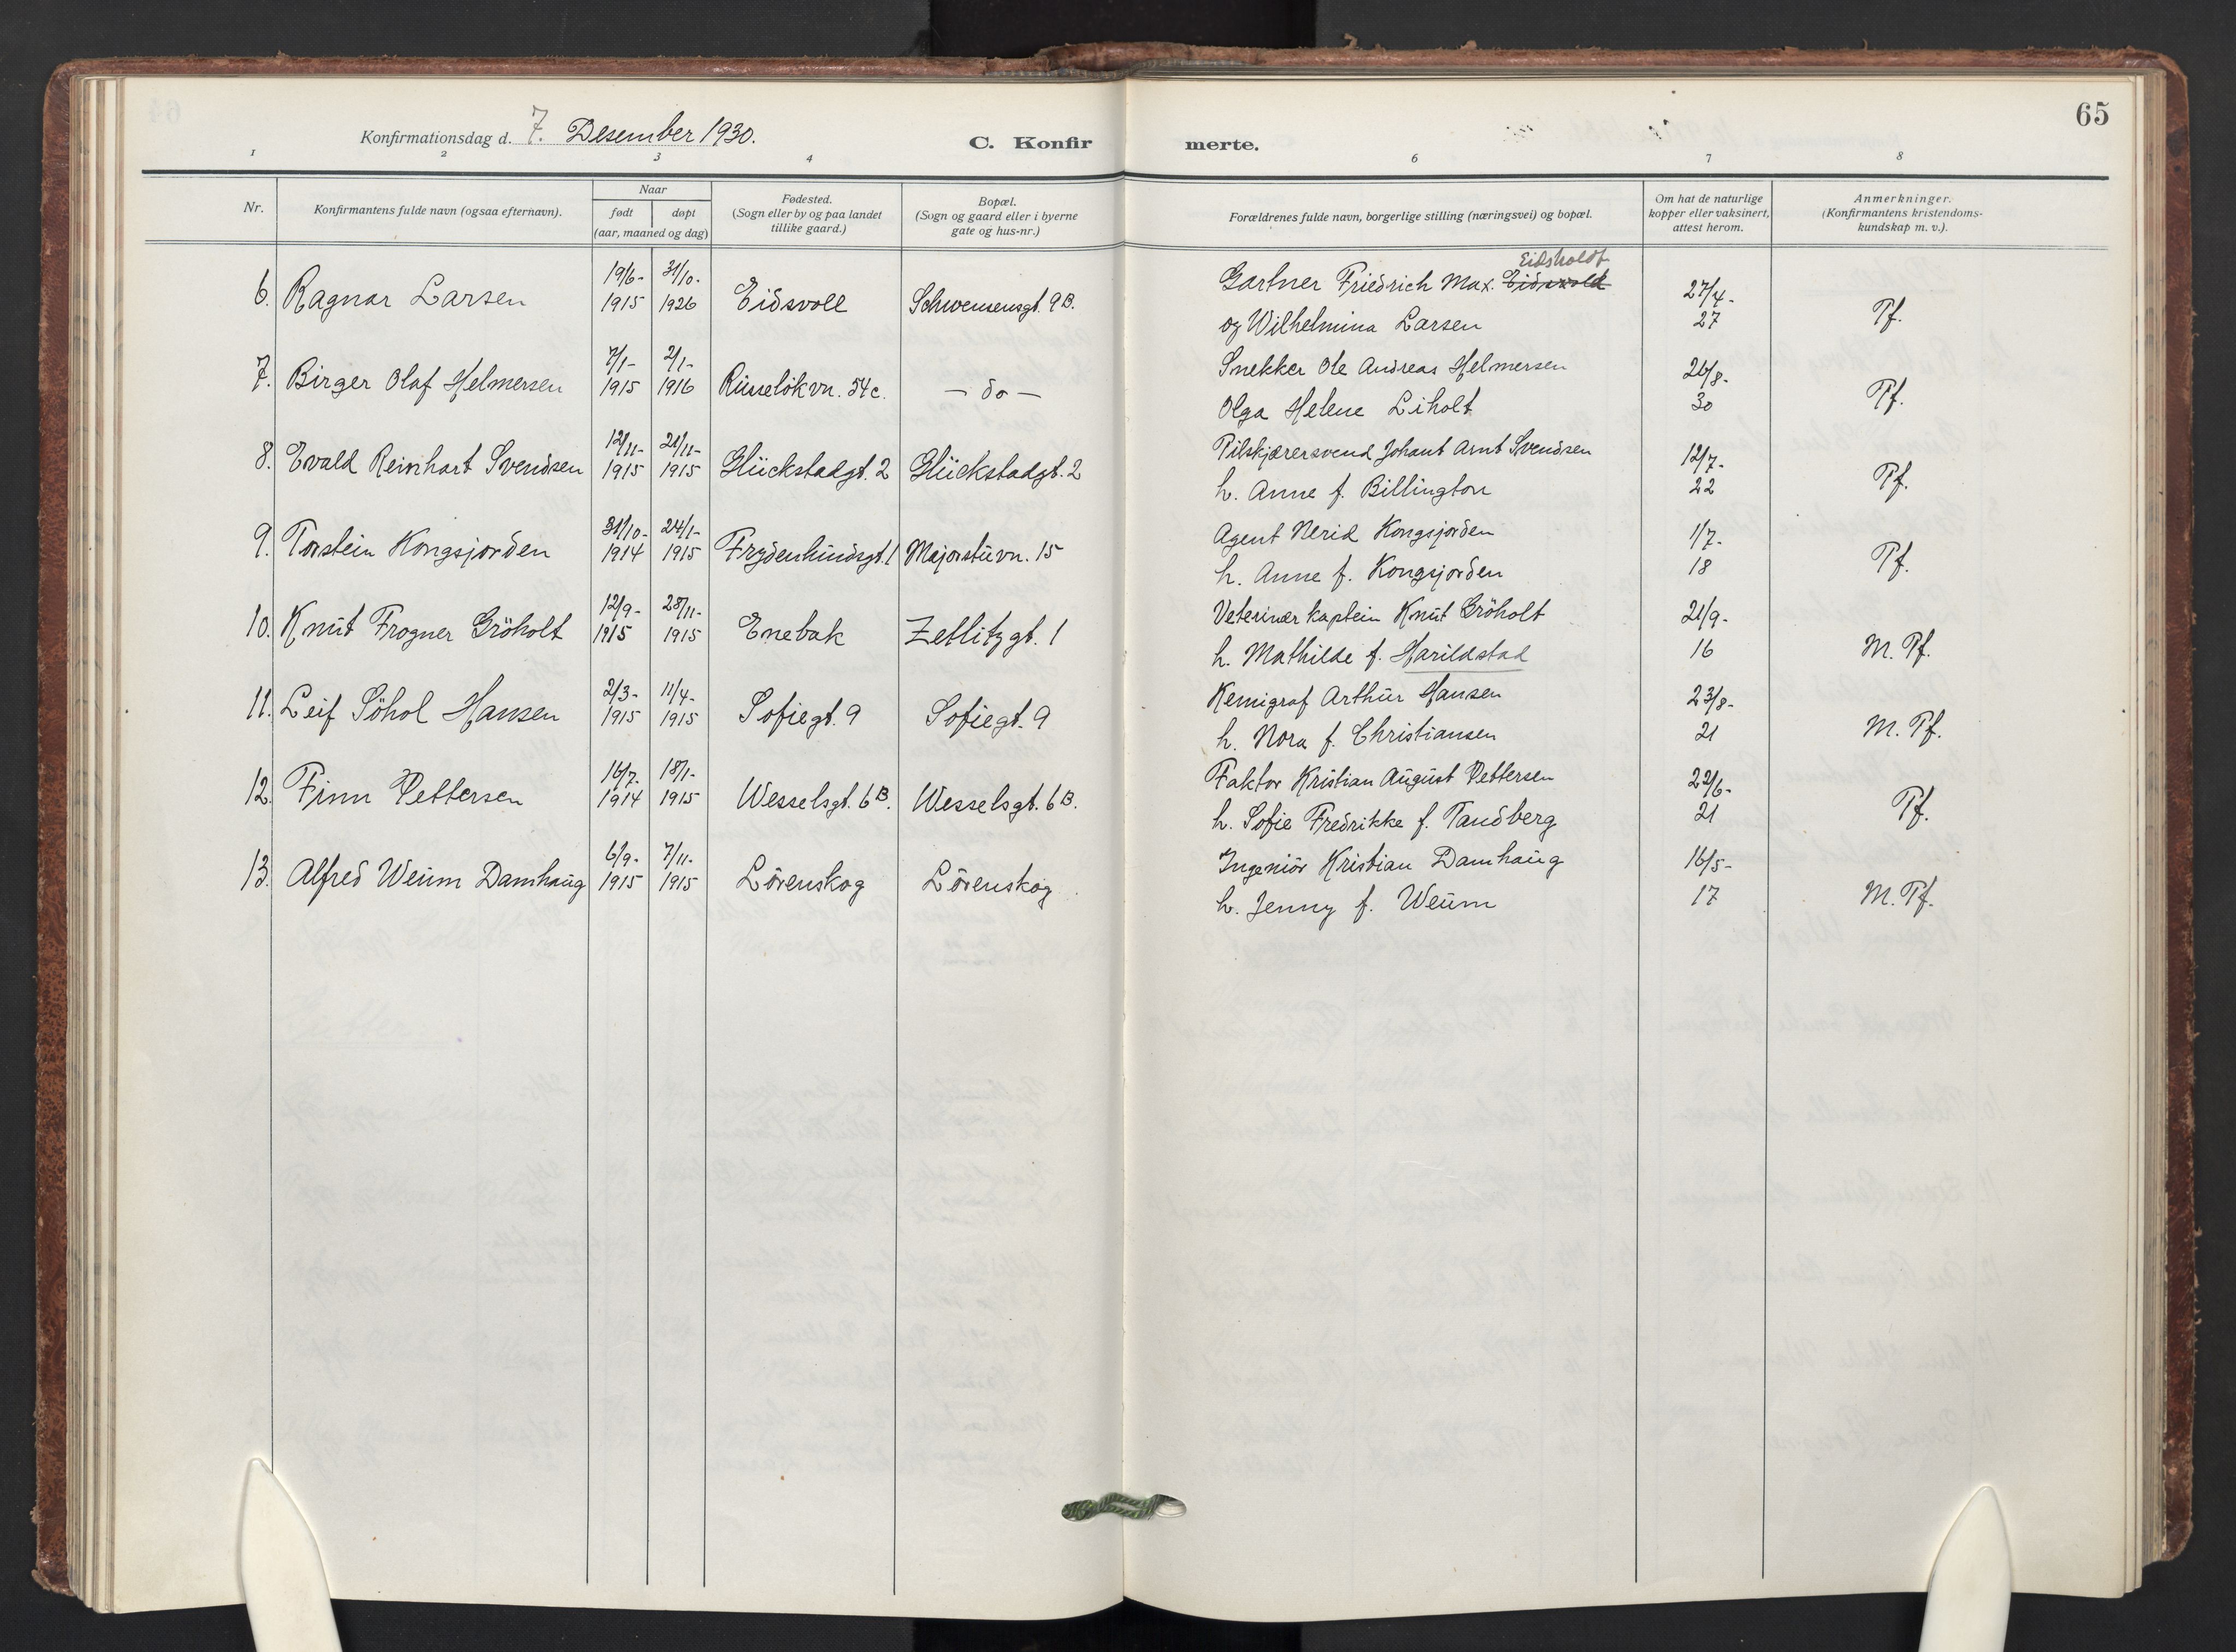 65
Konfirmationsdag d. 7. Desember 1930.
C. Konfirmerte.
1 2 3 4 6 7 8
Nr.
Konfirmantens fulde navn (ogsaa efternavn).
Naar
født døpt
(aar, maaned og dag)
Fødested.
(Sogn eller by og paa landet
tillike gaard.)
Bopæl.
(Sogn og gaard eller i byerne
gate og hus-nr.)
Forældrenes fulde navn, borgerlige stilling (næringsvei) og bopæl.
Om hat de naturlige
kopper eller vaksinert,
attest herom.
Anmerkninger.
(Konfirmantens kristendoms-
kundskap m. v.).
Eidsholdt
19/6- 31/10- Gartner Friedrich Max. Eidsvold 27/4-
6. Ragnar Larsen 1915 1926 Eidsvoll Schwensensgt. 9B. og Wilhelmina Larsen 27 Tf.
7/1- 2/1- Snekker Ole Andreas Helmersen 26/8-
7. Birger Olaf Helmersen 1915 1916 Ruseløkvn. 54c. — do — Olga Helene Liholt 30 Tf.
12/11- 21/11- Pilskjærersvend Johant Arnt Svendsen 12/7-
8. Evald Reinhart Svendsen 1915 1915 Glückstadgt. 2 Glückstadgt. 2 h. Anne f. Billington 22 Tf.
31/10- 24/1- Agent Nerid Kongsjorden 1/7-
9. Torstein Kongsjorden 1914 1915 Frydenlundsgt. 1 Majorstuvn. 15 h. Anne f. Kongsjorden 18 Tf.
12/9- 28/11- Veterinær kaptein Knut Gröholt 21/9-
10. Knut Frogner Gröholt 1915 1915 Enebak Zetlitzgt. 1 h. Mathilde f. Harildstad 16 M. Tf.
2/3- 11/4- Kemigraf Arthur Hansen 23/8-
11. Leif Söhol Hansen 1915 1915 Sofiegt. 9 Sofiegt. 9 h. Nora f. Christiansen 21 M. Tf.
16/7- 18/1- Faktor Kristian August Pettersen 22/6-
12. Finn Pettersen 1914 1915 Wesselsgt. 6B. Wesselsgt. 6B. h. Sofie Fredrikke f. Tandberg 21 Tf.
6/9- 7/11- Ingeniör Kristian Damhaug 16/5-
13. Alfred Weum Damhaug 1915 1915 Lörenskog Lörenskog h. Jenny f. Weum 17 M. Tf.